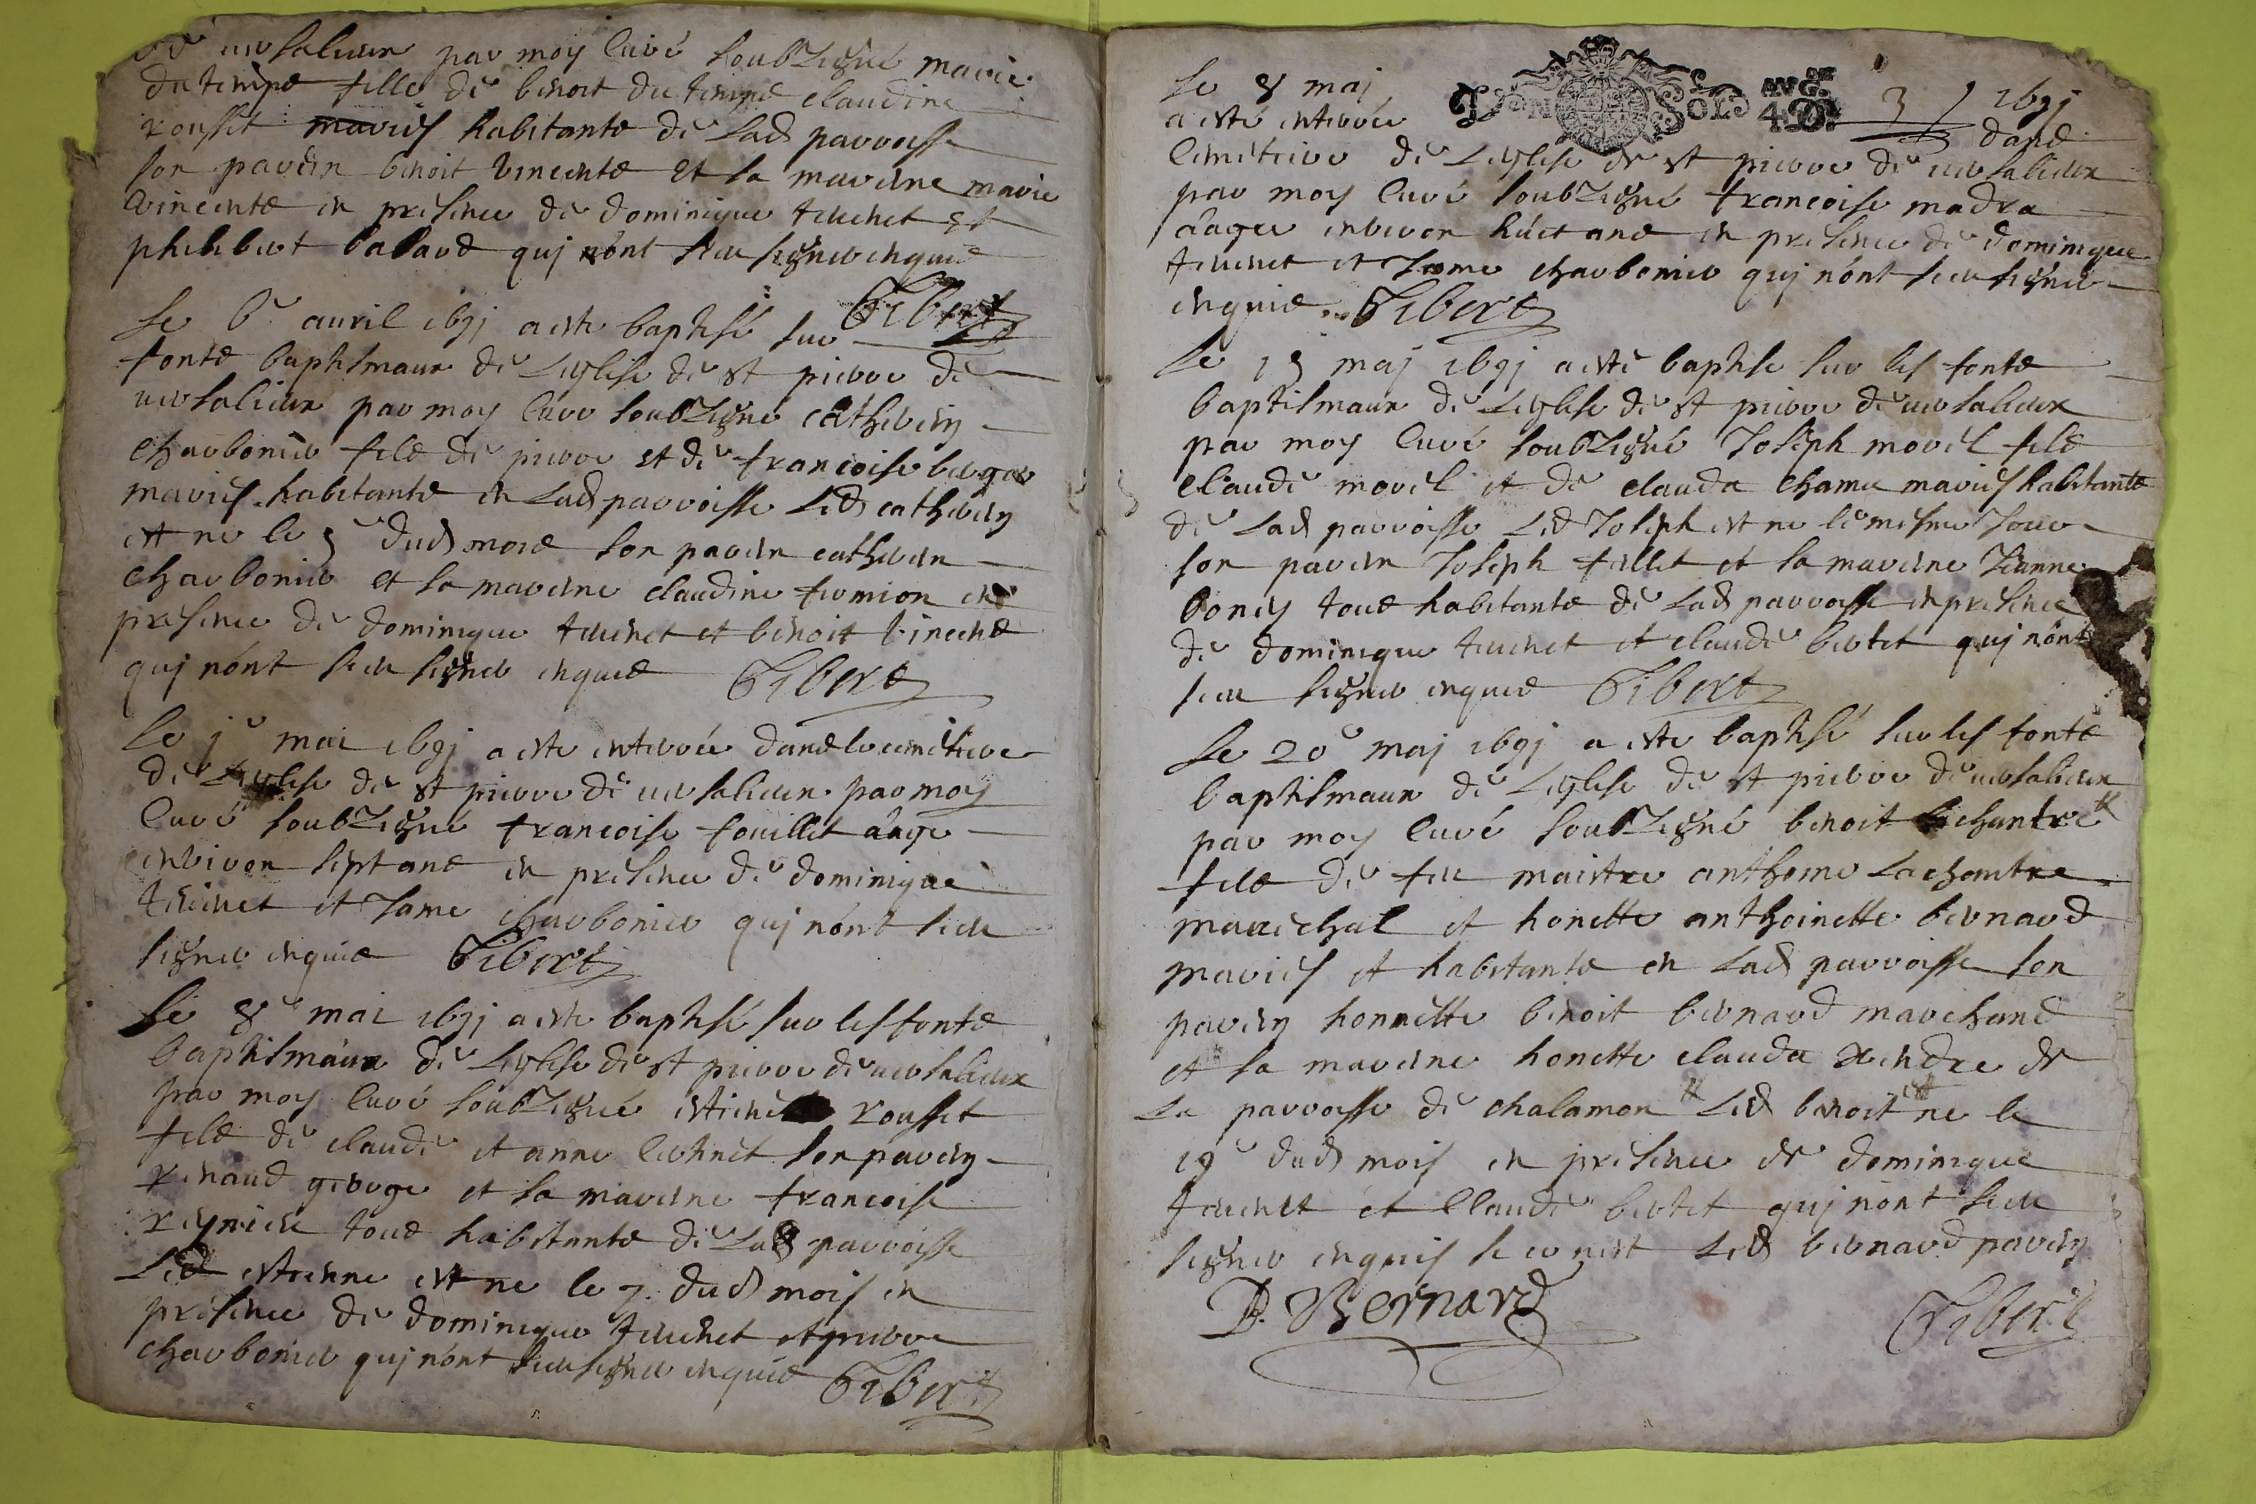 de versalieux par moy curé soubzigné marie
du tempe fille de benoit du tempe claudine
rousset mariés habitants de lad parroisse
son parein benoit vincents et sa mareine marie
vincents en presence de dominique treuenet et
philibert balard quj nónt sceu signer enquis
Gibert
le 6e auril 1691 a este baptisé sur
fonts baptismaux de Leglise de st pierre de
uersalieux par moy curé soubzigné catherin
charbonier fils de pierre et de francoise berger
mariés habitants en lad parroisse Led catherin
est ne le 5e dud mois son parein catherin
charbonier et sa mareine claudine fromion en
presence de dominique treuenet et benoit vincens
quj nónt sceu signer enquis Gibert
Le je mai 1691 a este enterrée dans le cimetiere
de Leglise de st pierre de uersalieux par moy
curé soubzigné francoise fouillet áage
enuiron sept ans en presence de dominique
treuenet et Jame charbonier quj nónt sceu
signer enquis Gibert
Le 8e mai 1691 a este baptisé sur les fonts
baptismáux de Leglise de st pierre de uersalieux
par moy curé soubzigné estiene rousset
fils de claude et anne cochet son parein
renaud george et sa mareine francoise
reynieu tous habitants de Lad parroisse
Led estienne est ne le 7. dud mois en
presence de dominique treuenet et pierre
charbonier quj nónt sceu signer enquis Gibert
Le 8 maj 1691
GEN SOLS AVG. DE 4. 3
a este enterrée dans
cimetiere de Leglise de st pierre de uersalieux
par moy curé soubzigné francoise madra
áagee enuiron huict ans en presence de dominique
treuenet et Jame charbonier quj nónt sceu signer
enquis Gibert
Le 15 maj 1691 a este baptise sur les fonts
baptismaux de Leglise de st pierre de uersalieux
par moy curé soubzigné Joseph morel fils
claude morel et de clauda chamu mariés habitants
de Lad parroisse Led Joseph est ne le mesme Jour
son parein Joseph fillet et sa mareine Jeanne
bondy tous habitants de Lad parroisse en presence
de dominique treuenet et claude bertet quj nónt
sceu signer enquis Gibert
Le 20e maj 1691 a este baptisé sur les fonts
baptismaux de Leglise de st pierre de uersalieux
par moy curé soubzigné benoit Lachantre
fils de feu maistre anthoine Lachantre
marechal et honette anthoinette bernard
mariés et habitants en Lad parroisse son
parein honnette benoit bernard marchand
et sa mareine honette clauda gendre de
La parroisse de chalamon Led benoit est ne le
19e dud mois en presence de dominique
treuenet et Claude bertet quj nónt sceu
signer enquis se ce nest Led bernard parein
B. Bernard
Gibert